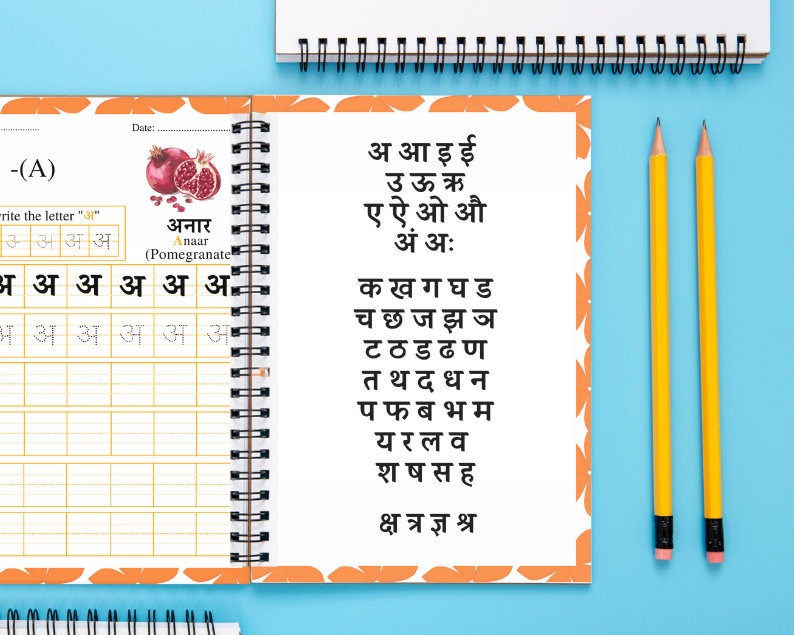 Date: ............................
-(A)
अनार
Anaar
(Pomegranate
rite the letter "अ"
अ अ अ अ
अ अ अ अ अ अ
अ अ अ अ अ अ
अ आ इ ई
उ ऊ ऋ
ए ऐ ओ औ
अं अः
क ख ग घ ड
च छ ज झ ञ
ट ठ ड ढ ण
त थ द ध न
प फ ब भ म
य र ल व
श ष स ह
क्ष त्र ज्ञ श्र